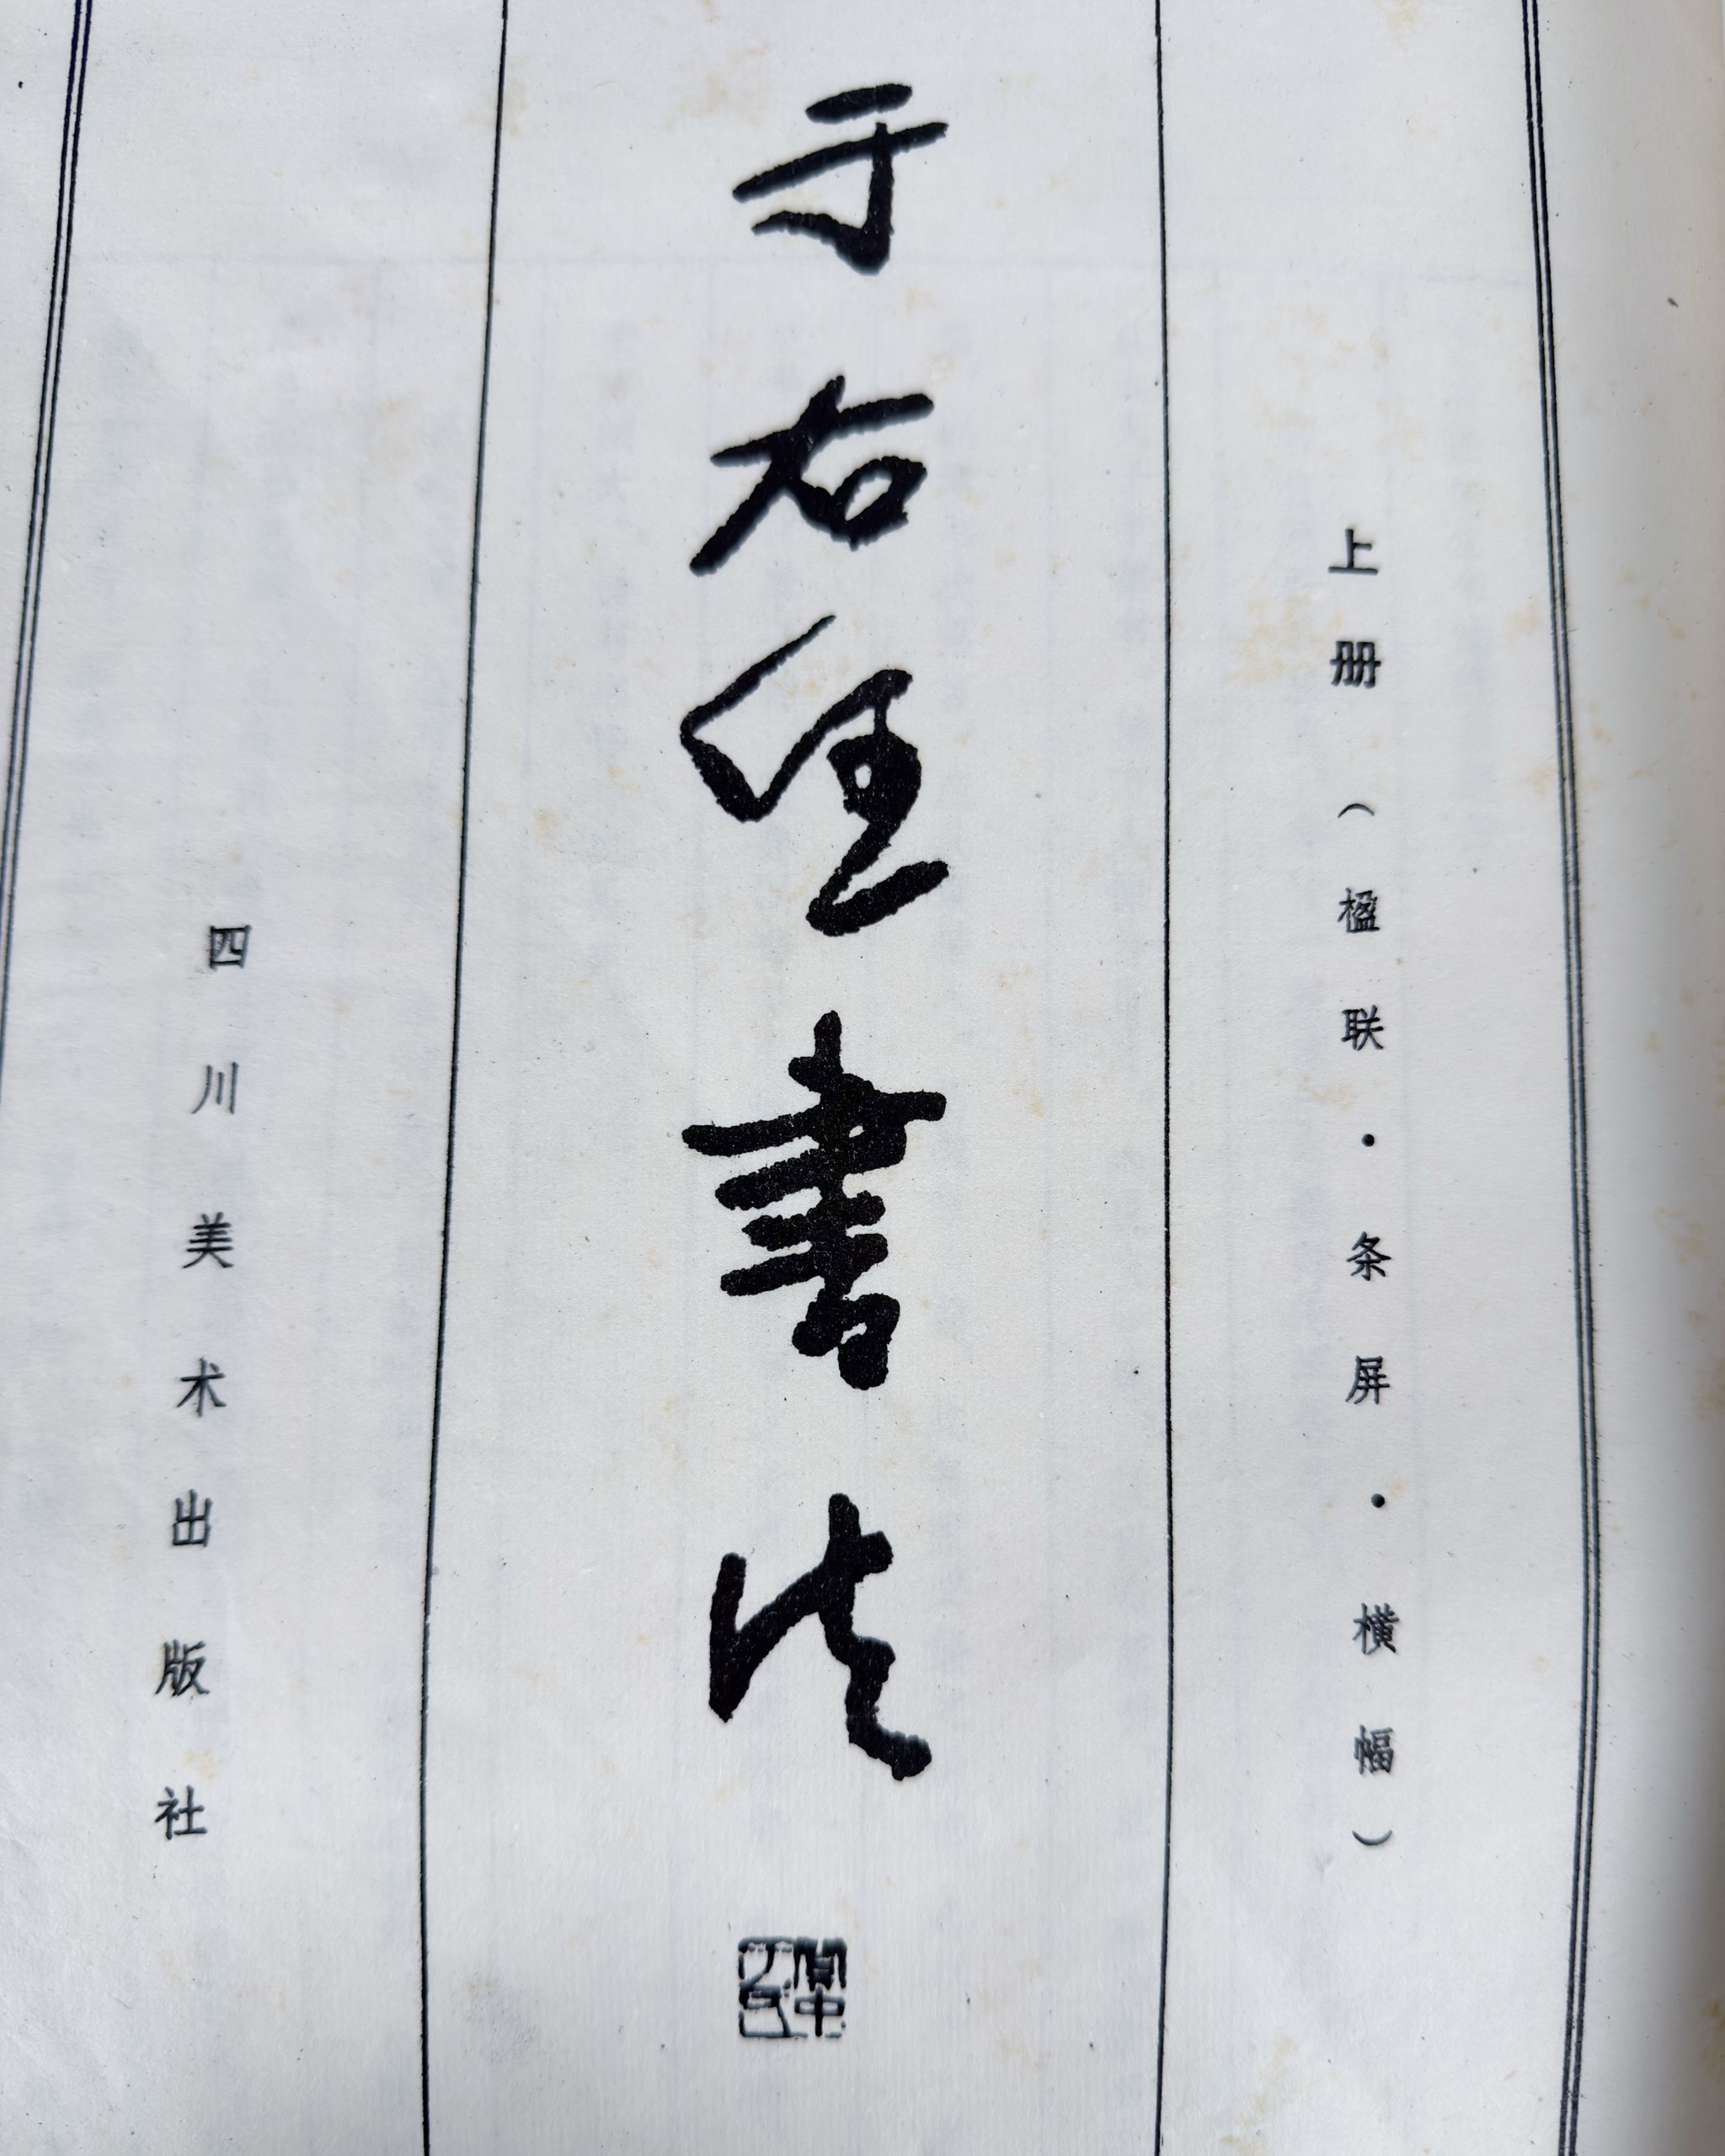 上册 （楹联·条屏·横幅）
于右任書法
四川美术出版社